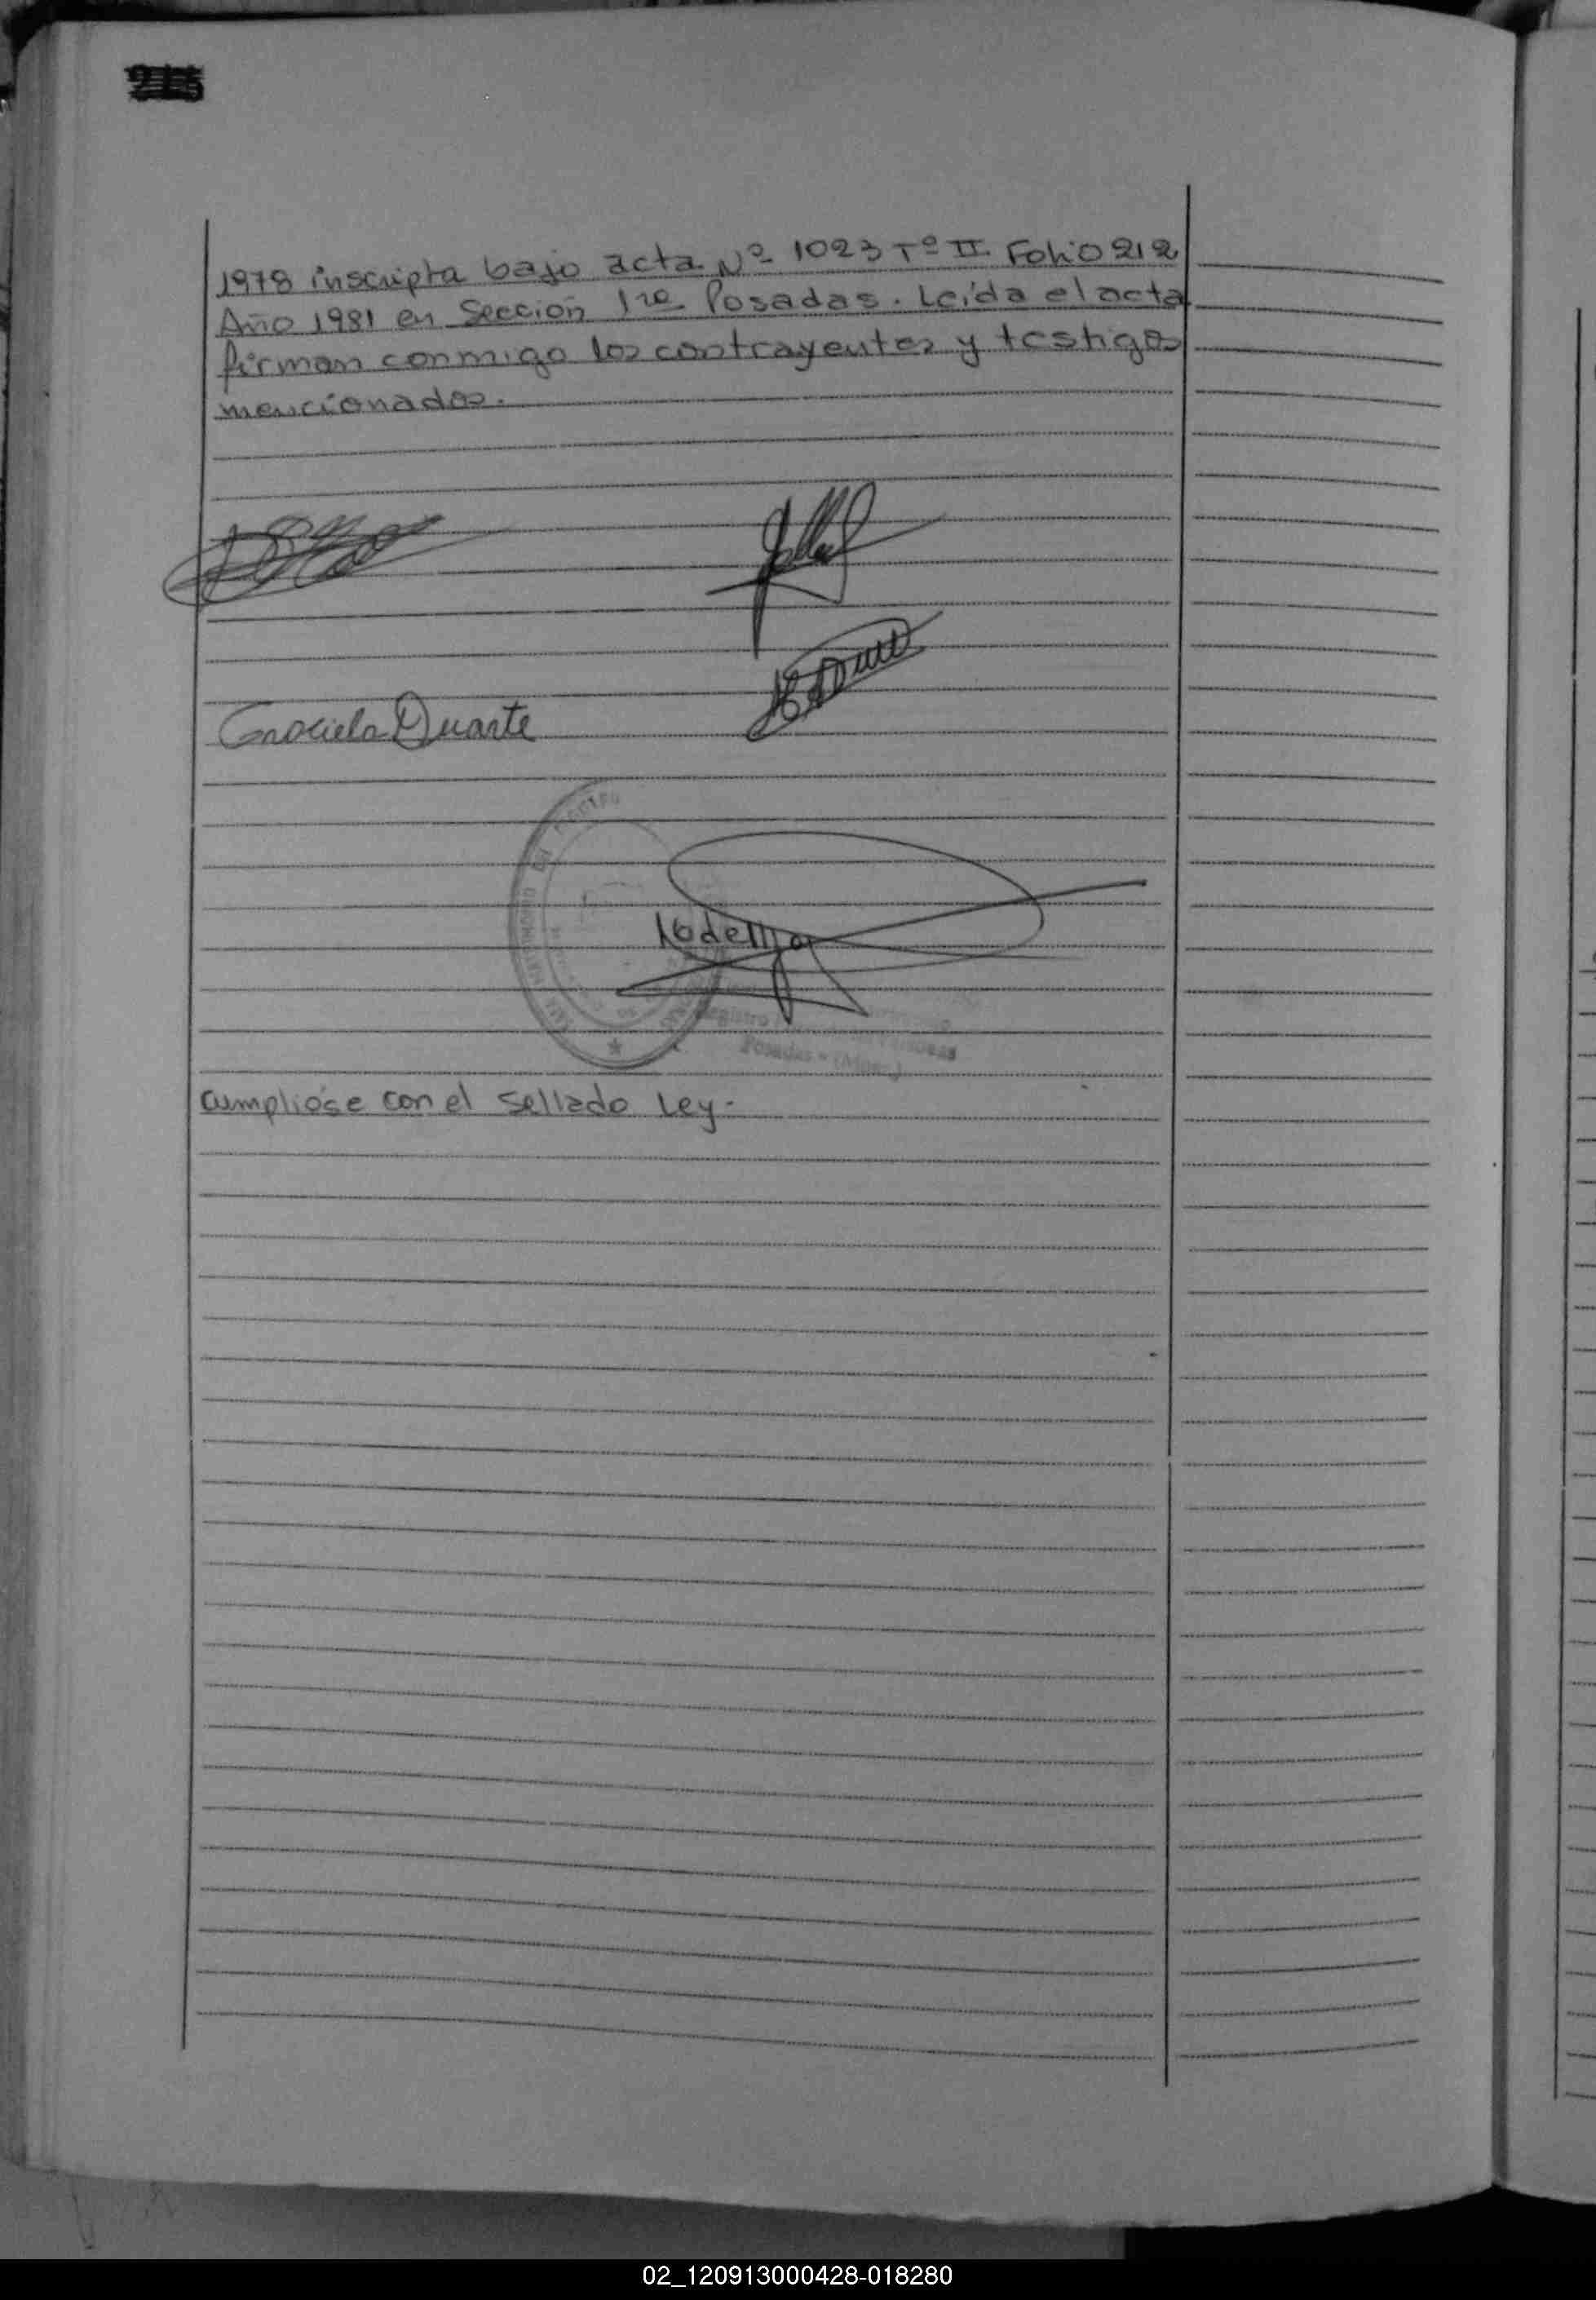 1978 inscripta bajo acta Nº 1023 Tº II Folio 212
Año 1981 en Sección 1ra Posadas. Leída el acta
firman conmigo los contrayentes y testigos
mencionados.
Graciela Duarte
Registro
Posadas - (Mnes.)
cumplióse con el sellado Ley.
02_120913000428-018280